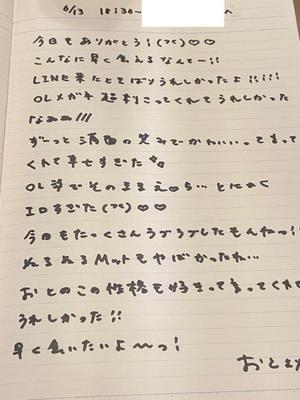 6/13 18:30~
今日もありがとう!(ˊᵕˋ)♡♡
こんなに早く会えるなんてー!!
LINE来たとてばりうれしかったよ!!!!
OLメガネ 超刺さってくれてうれしかった
なぁぁ///
ずーっと満面の笑みでかわいいって言って
くれて幸せすぎた
OL姿でそのままえ
エロすぎた(ˊᵕˋ)♡♡
今日もたっくさんラブラブしたもんねっ!!
ぬるぬるMットもやばかったね…
おとのこの性格も好きって言ってくれて
うれしかった!!
早く会いたいよ〜っ!